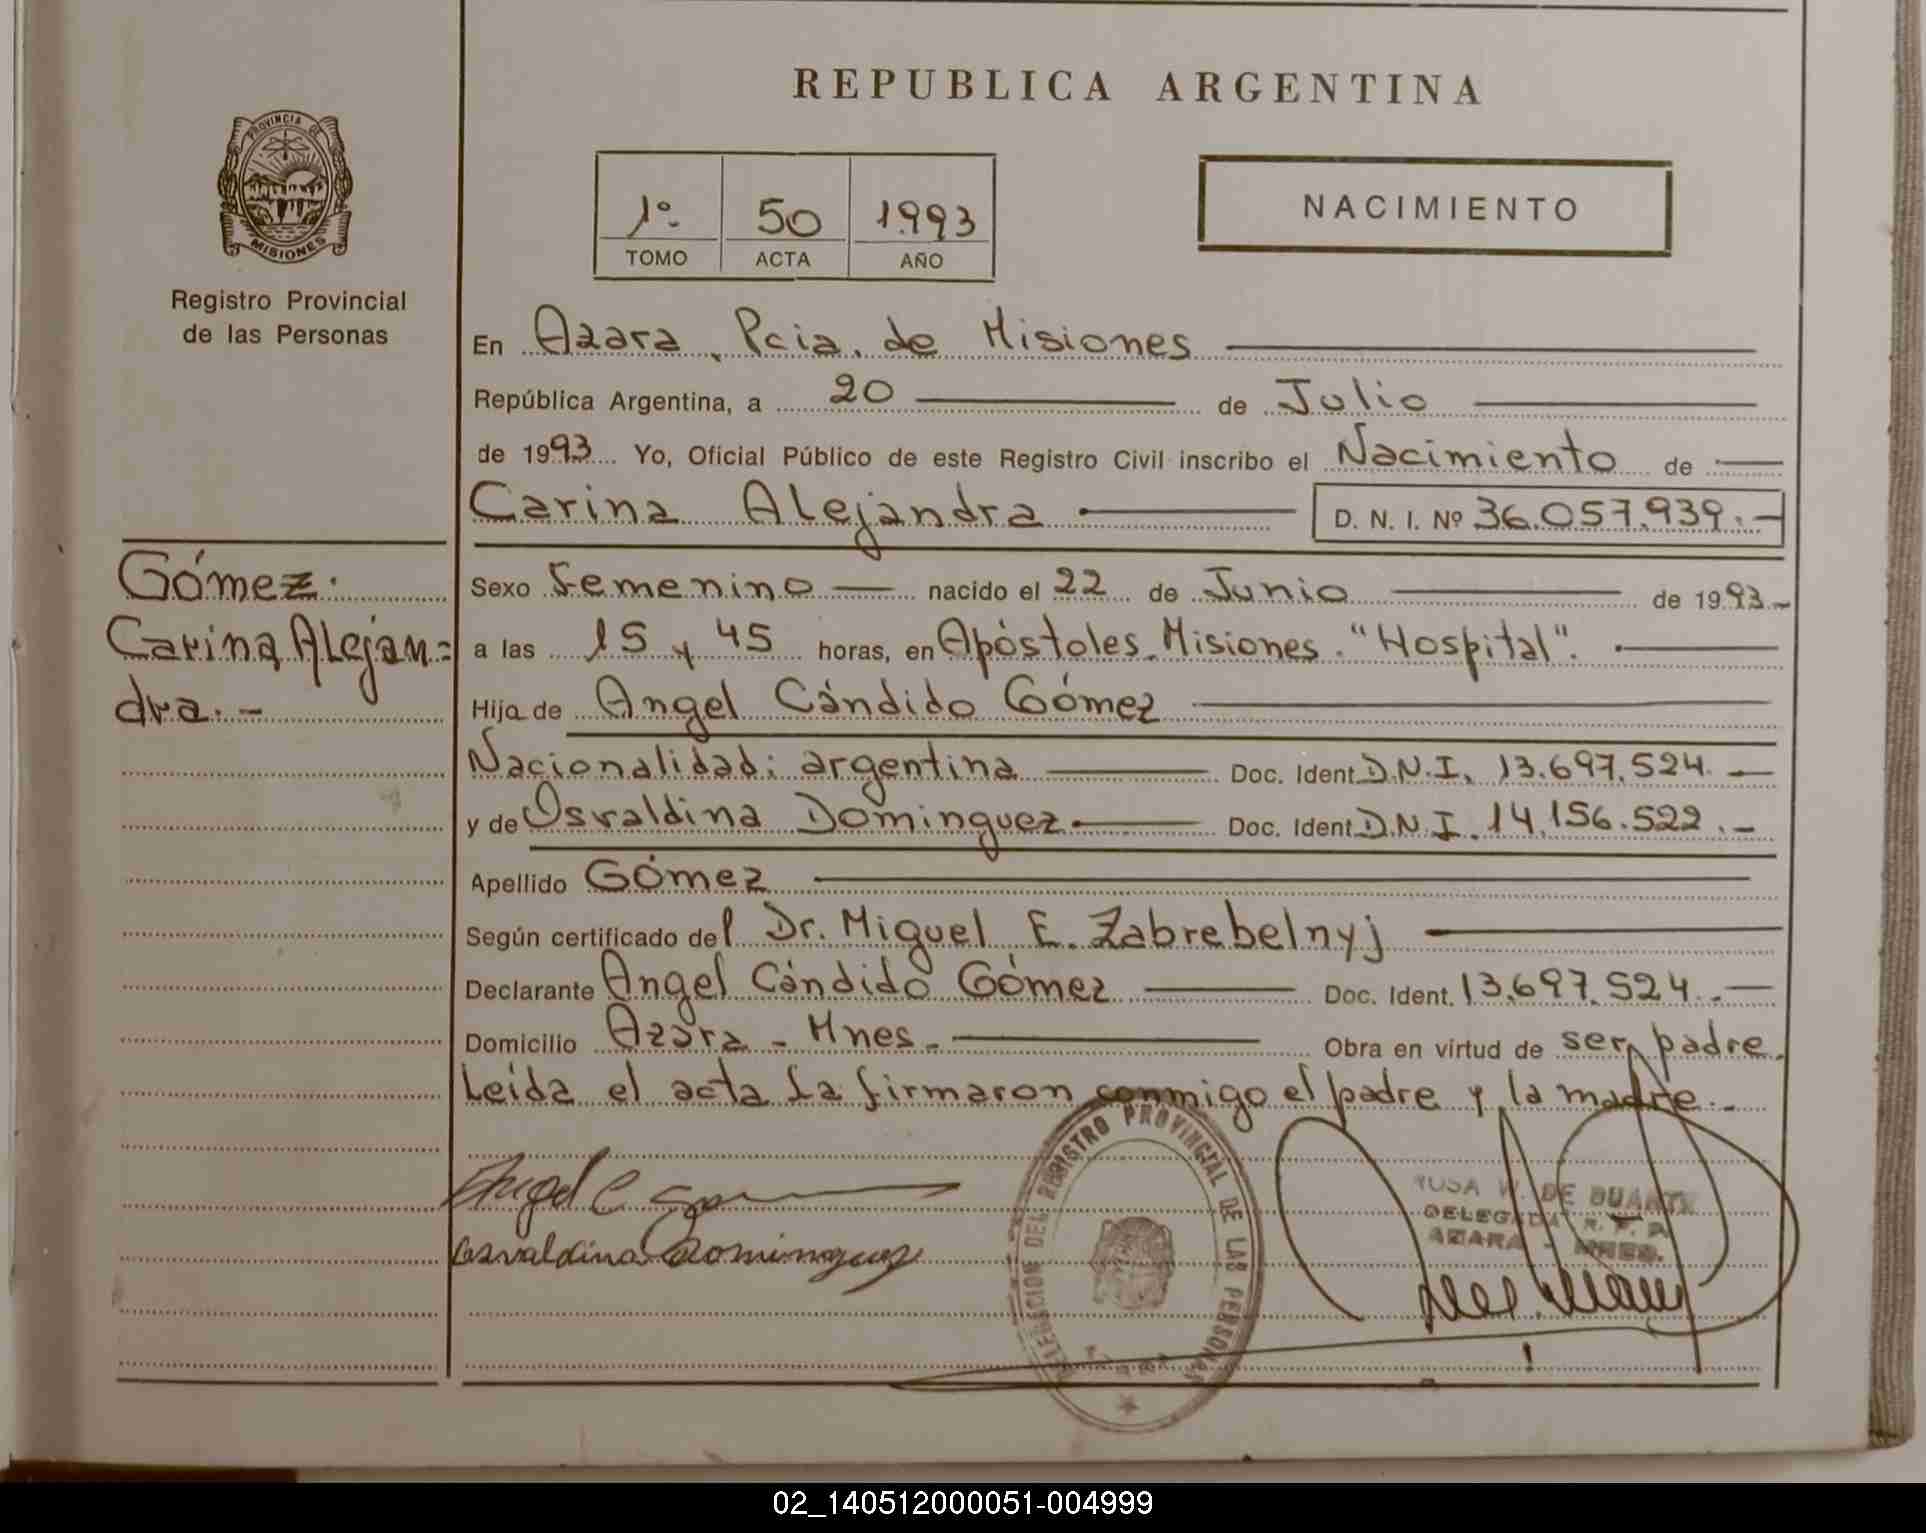 REPUBLICA ARGENTINA
PROVINCIA DE
MISIONES
Registro Provincial
de las Personas
1º 50 1993
TOMO ACTA AÑO
NACIMIENTO
En Azara, Pcia. de Misiones
República Argentina, a 20 de Julio
de 1993 Yo, Oficial Público de este Registro Civil inscribo el Nacimiento de
Carina Alejandra D. N. I. Nº 36.057.939.-
Gómez.
Carina Alejan=
dra.-
Sexo Femenino nacido el 22 de Junio de 1993.-
a las 15 y 45 horas, en Apóstoles. Misiones. "Hospital".
Hija de Angel Cándido Gómez
Nacionalidad: argentina Doc. Ident D.N.I. 13.697.524.
y de Osvaldina Dominguez Doc. Ident D.N.I. 14.156.522.-
Apellido Gómez
Según certificado del Dr. Miguel E. Zabrebelnyj
Declarante Angel Cándido Gómez Doc. Ident. 13.697.524.
Domicilio Azara - Mnes. Obra en virtud de ser padre.
Leída el acta la firmaron conmigo el padre y la madre.
Angel C
Osvaldina Dominguez
DELEGACION DEL REGISTRO PROVINCIAL DE LAS PERSONAS
ROSA W. DE DUARTE
DELEGADA R. P. P.
AZARA - MNES.
02_140512000051-004999